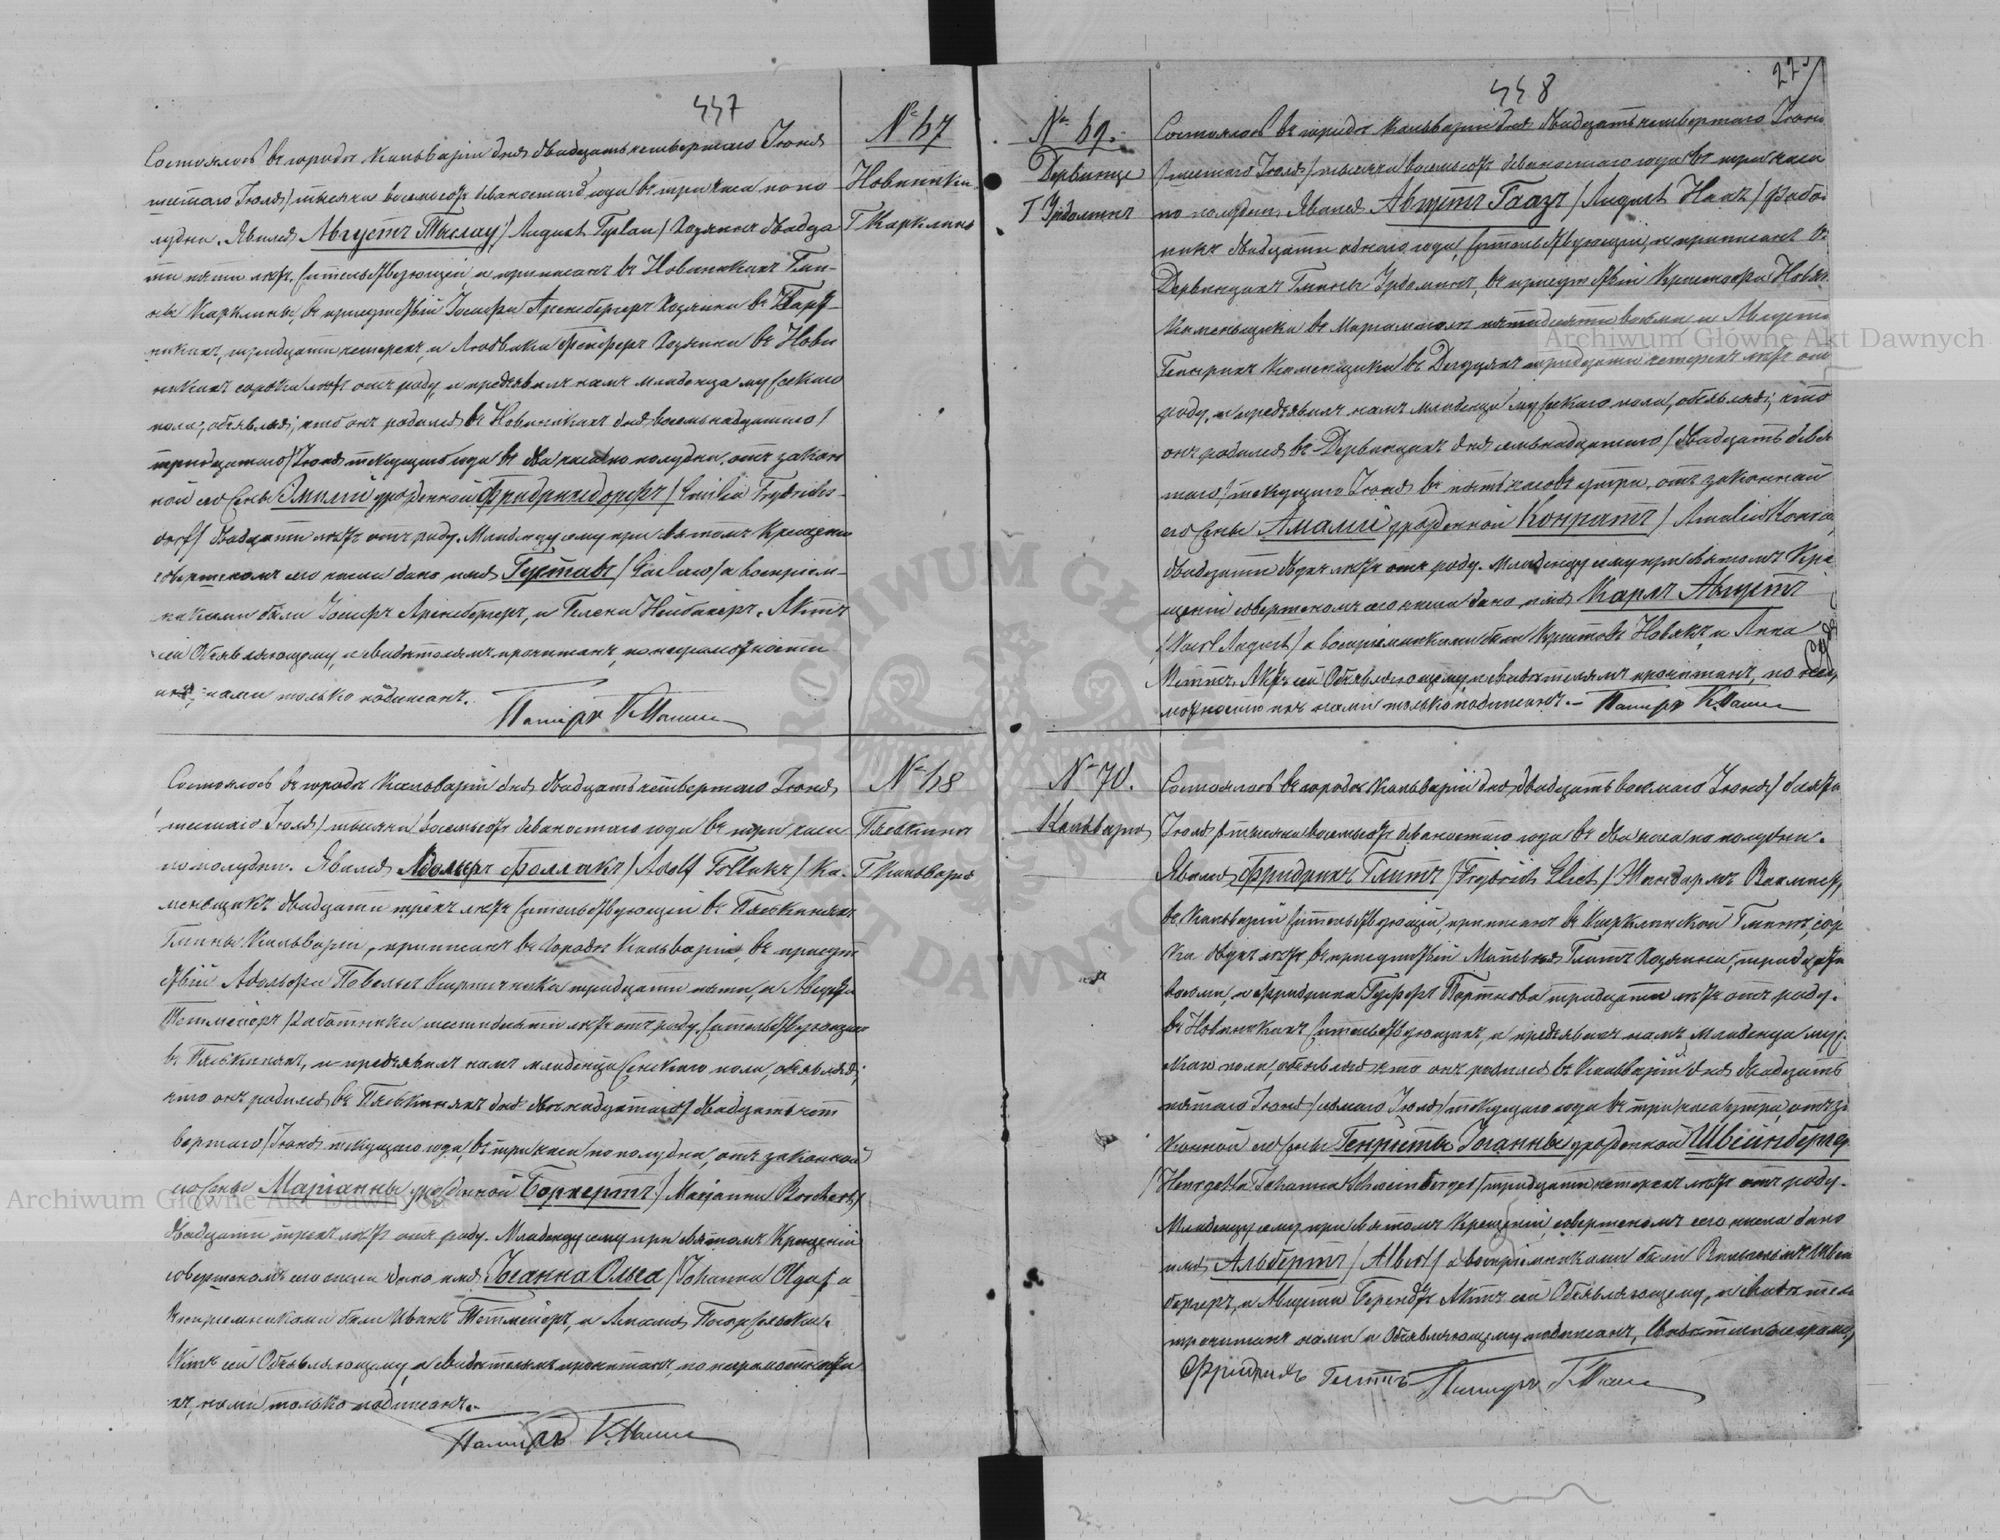 447
№ 67
Новинки
Г Карклины
Состоялось въ городѣ Кальваріи дня двадцать четвертаго Іюня
/шестаго Іюля/ тысяча восемьсотъ девяностаго года въ три часа по по
лудни. Явился Августъ Тыслау / August Tyslau / Хозяинъ двадца
ти пяти лѣтъ, жительствующій и приписанъ въ Новиникахъ Гми-
ны Карклины, въ присутствіи Іосифа Аренсбергеръ Хозяина въ
никахъ, тридцати четырехъ, и Людвика Фейферъ Хозяина въ Нови
никахъ сорока лѣтъ отъ роду, и предъявилъ намъ младенца мужескаго
пола, объявляя, что онъ родился въ Новиникахъ дня восемьнадцатаго /
тридцатаго / Іюня текущаго года въ два часа по полудни, отъ закон
ной его жены Эмиліи урожденной Фридрихсдорфъ / Emilia Frydrichs-
dorf / двадцати лѣтъ отъ роду. Младенцу сему при Святомъ Крещеніи
совершенномъ сего числа дано имя Густавъ / Gustaw / а воспріем-
никами были Іосифъ Аренсбергеръ, и Гелена Нейбахеръ. Актъ
сей Объявляющему, и свидѣтелямъ прочитанъ, по неграмотности
ихъ, нами только подписанъ.
Пасторъ
№ 68
Г Кальварія
Состоялось въ городѣ Кальваріи дня двадцать четвертаго Іюня
/ шестаго Іюля / тысяча восемьсотъ девяностаго года въ три часа
по полудни. Явился Адольфъ Фоллакъ / Adolf Follak / Ка-
меньщикъ двадцати трехъ лѣтъ жительствующій въ
Гмины Кальварія, приписанъ въ городѣ Кальваріи, въ присут
ствіи Адольфа Кирпичника тридцати пяти, и Августа
Тетмейеръ Работника шестидесяти лѣтъ отъ роду, жительствующихъ
въ и предъявилъ намъ младенца женскаго пола, объявляя,
что онъ родился въ дня двѣнадцатаго / двадцать чет
вертаго / Іюня текущаго года, въ три часа по полудни, отъ законной
его жены Маріанны урожденной Борхертъ / Marjanna Borchert /
двадцати трехъ лѣтъ отъ роду. Младенцу сему при Святомъ Крещеніи
совершенномъ сего числа дано имя Іоганна Ольга / Johanna Olga / а
воспріемниками были Иванъ Тетмейеръ, и Амалія
Актъ сей Объявляющему, и свидѣтелямъ прочитанъ, по неграмотности
ихъ, нами только подписанъ.
Пасторъ
448
225
№ 69.
Дервинце
Г Урдоминъ
Состоялось въ городѣ Кальваріи дня двадцать четвертаго Іюня
/ шестаго Іюля / тысяча восемьсотъ девяностаго года въ три часа
по полудни. Явился Августъ Гаазъ / August Haaz /
двадцати одного года, жительствующій и приписанъ въ
Дервинцахъ Гмины Урдоминъ, въ присутствіи Кристофа Новякъ
Каменьщика въ Маріамполѣ пятидесяти восьми и Августа
Генрихъ Каменщика въ тридцати четырехъ лѣтъ отъ
роду, и предъявилъ намъ младенца мужескаго пола, объявляя, что
онъ родился въ Дервинцахъ дня семьнадцатаго / двадцать девя
таго / текущаго Іюня въ пять часовъ утра, отъ законной
его жены Амаліи урожденной Конратъ / Amalia
двадцати двухъ лѣтъ отъ роду. Младенцу сему при Святомъ Кре
щеніи совершенномъ сего числа дано имя Карлъ Августъ
/ Karl August / а воспріемниками были Криштофъ Новякъ и Анна
Актъ сей Объявляющему и свидѣтелямъ прочитанъ, по негра
мотности ихъ нами только подписанъ. — Пасторъ
№ 70.
Кальварія
Состоялось въ городѣ Кальваріи дня двадцать восьмаго Іюня / десятаго
Іюля / тысяча восемьсотъ девяностаго года въ два часа по полудни.
Явился Фридрихъ Глитъ / Frydrich Glict / Жандармъ Вахмистръ
въ Кальваріи жительствующій, приписанъ въ Карклинской Гминѣ, сор
ка двухъ лѣтъ, въ присутствіи Глитъ Хозяина, тридцати
восьми, и Фридриха Портнова тридцати лѣтъ отъ роду,
въ Новиникахъ жительствующихъ, и предъявилъ намъ младенца муж
скаго пола, объявляя что онъ родился въ Кальваріи дня двадцать
пятаго Іюня / седьмаго Іюля / текущаго года въ три часа утра, отъ за
конной его жены Генриеты Іоганны урожденной Швейнбергеръ
/ Henryetta Johanna Schweinberger / тридцати четырехъ лѣтъ отъ роду.
Младенцу сему при Святомъ Крещеніи, совершенномъ сего числа дано
имя Альбертъ / Albert / а воспріемниками были Вильгельмъ Швейн
бергеръ, и Августа Берендъ. Актъ сей Объявляющему, и свидѣтелямъ
прочитанъ нами и Объявляющему подписанъ,
Фридрихъ Глитъ Пасторъ
Archiwum Główne Akt Dawnych
Archiwum Główne Akt Dawnych
ARCHIWUM GŁÓWNE AKT DAWNYCH